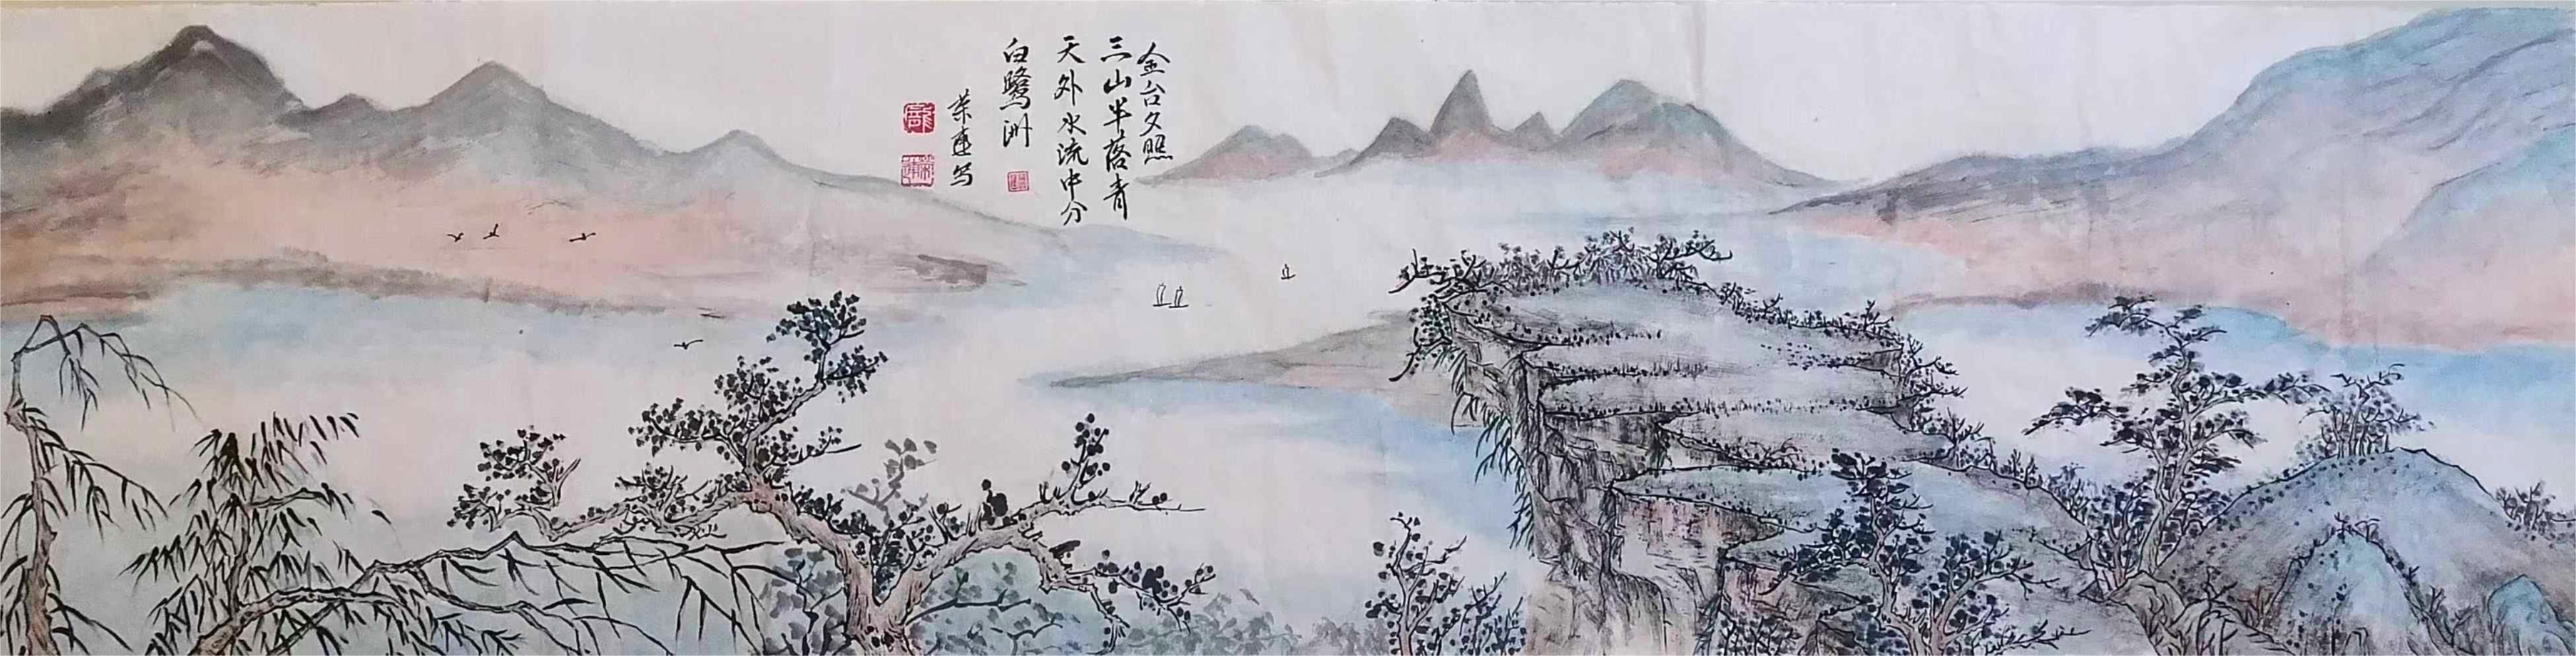 金台夕照
三山半落青
天外水流中分
白鹭洲
荣莲写